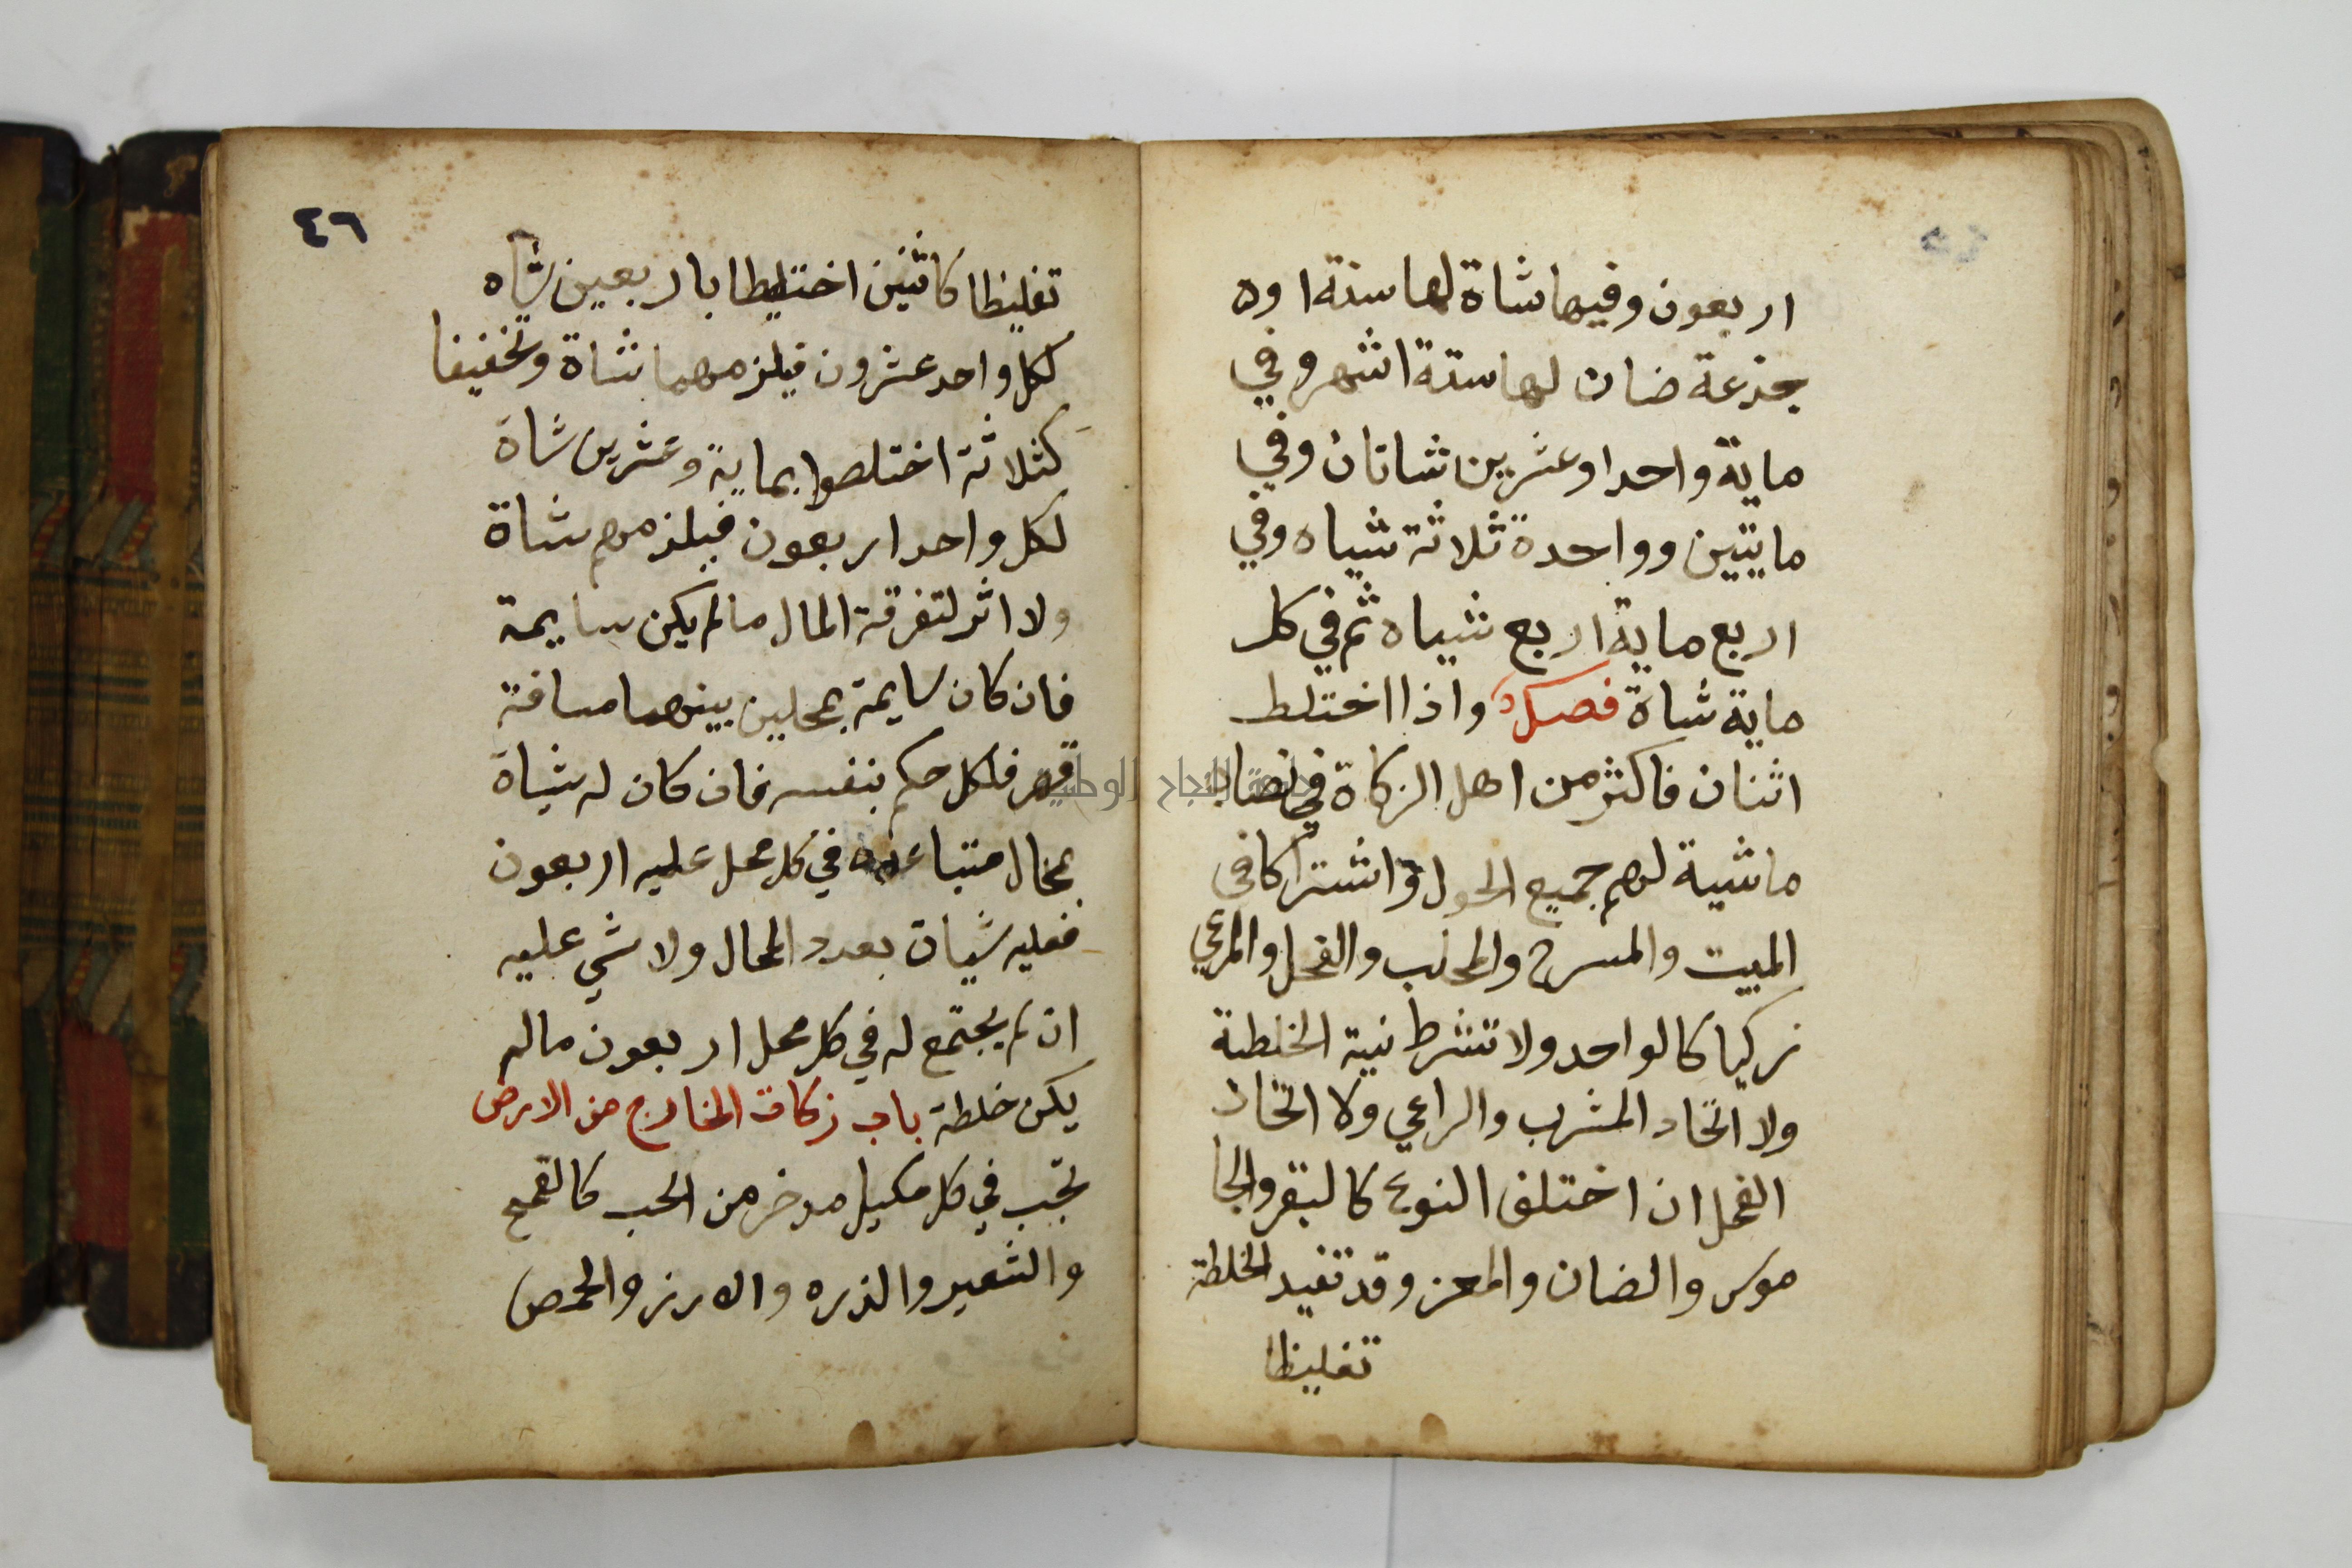 اربعون وفيها شاة لها سنة او
جذعة ضان لها ستة اشهر وفي
ماية واحدا وعشرين شاتان وفي
مايتين وواحدة ثلاثة شياه وفي
اربع ماية اربع شياه ثم في كل
ماية شاة فصل واذا اختلط
اثنان فاكثر من اهل الزكاة في نصاب
ماشية لهم جميع الحول واشتركا في
المبيت والمسرح والمحلب والفحل والمرعي
زكيا كالواحد ولا تشرط نية الخلطة
ولا اتحاد المشرب والراعي ولا اتحاد
الفحل ان اختلف النوع كالبقر والجا
موس والضان والمعز وقد تفيد الخلطة
تغليظا
٤٦
تغليظا كاثنين اختليطا باربعين شاه
لكل واحد عشرون فيلزمهما شاة وتخفيفا
كثلاثة اختلطوا بماية وعشرين شاة
لكل واحد اربعون فيلزمهم شاة
ولا اثر لتفرقة المال مالم يكن سايمة
فان كان سايمة بمحلين بينهما مسافة
قصر فلكل حكم بنفسه فان كان له شياة
بمحال متباعدة في كل محل عليه اربعون
فعليه شياة بعدد المحال ولا شي عليه
ان لم يجتمع له في كل محل اربعون مالم
يكن خلطة باب زكاة الخارج من الارض
تجب في كل مكيل مدخر من الحب كالقمح
والشعير والذره والارز والحمص
جامعة النجاح الوطنية